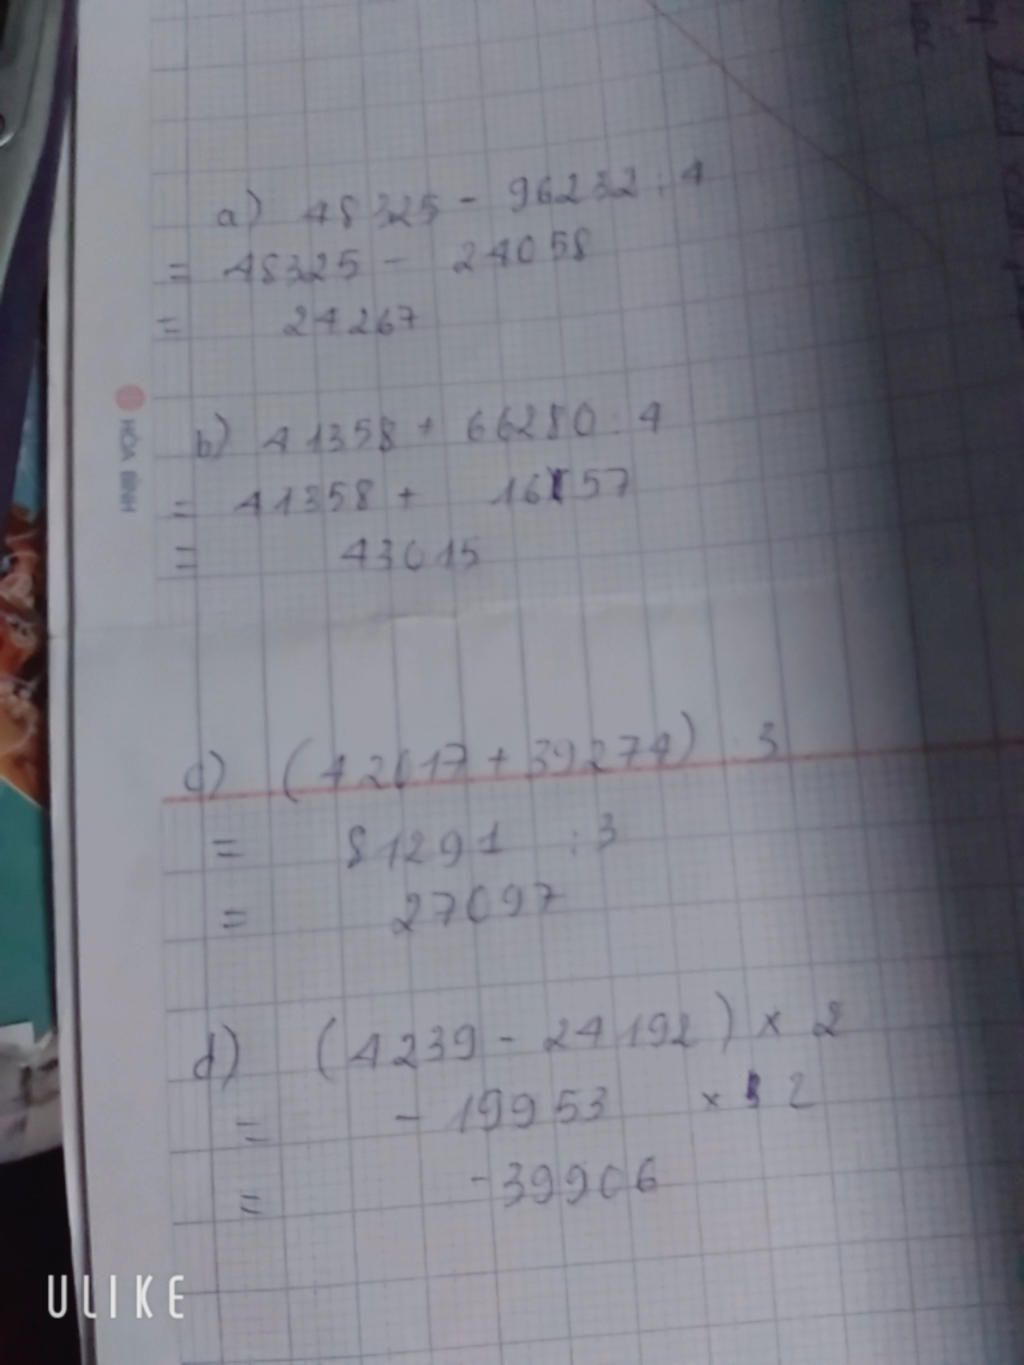 a) 48325 - 96232 : 4
= 48325 - 24058
= 24267
b) 41358 + 66280 : 4
= 41358 + 16157
= 43015
c) (42017 + 39274) : 3
= 81291 : 3
= 27097
d) (4239 - 24192) × 2
= - 19953 × 2
= -39906
HÒA BÌNH
ULIKE